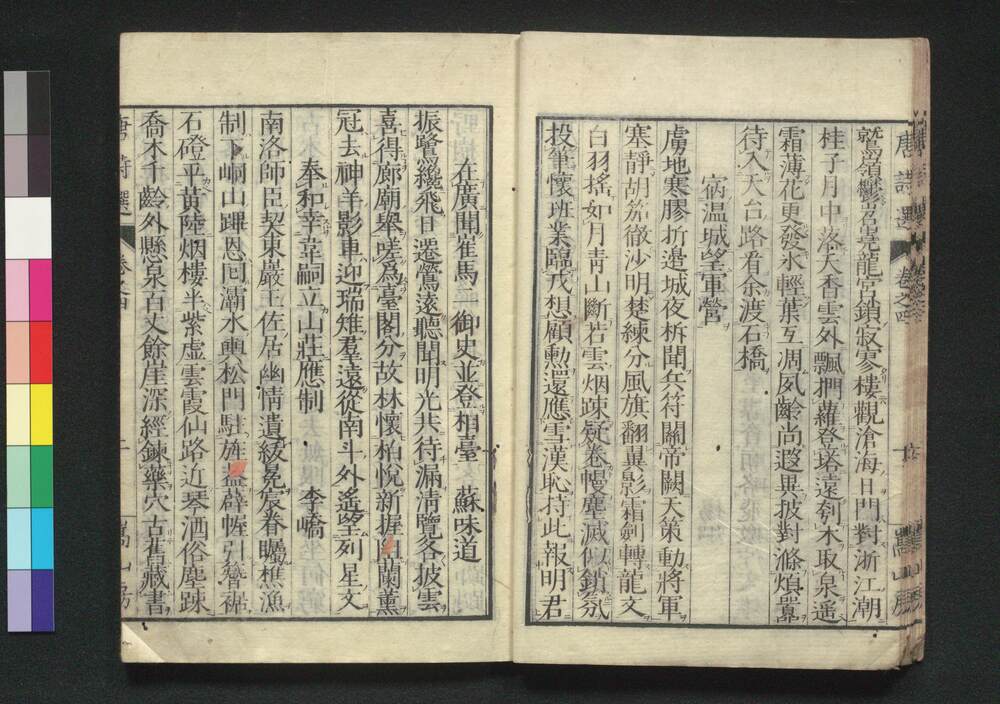 鷲嶺鬱岧嶤龍宮鎖寂寥樓觀滄海日門對浙江潮
桂子月中落天香雲外飄捫蘿登塔遠刳木取泉遙
霜薄花更發氷輕葉互凋夙齡尚遐異披對滌煩囂
待入天台路看余渡石橋
宿温城望軍營
虜地寒膠折邊城夜柝聞兵符關帝闕天策動將軍
塞靜胡笳徹沙明楚練分風旗翻翼影霜劍轉龍文
白羽搖如月青山斷若雲烟疎疑卷幔塵滅似銷氛
投筆懷班業臨戎想顧勲還應雪漢恥持此報明君
唐詩選
卷之四
在廣聞崔馬二御史並登相臺
蘇味道
振鷺纔飛日遷鶯遠聽聞明光共待漏清覽各披雲
喜得廊廟舉嗟爲臺閣分故林懷柏悅新握阻蘭薰
冠去神羊影車迎瑞雉羣遠從南斗外遙望列星文
奉和幸韋嗣立山莊應制
李嶠
南洛師臣契東巖王佐居幽情遺紱冕宸眷矚樵漁
制下峒山蹕恩回灞水輿松門駐旌蓋薜幄引簪裾
石磴平黃陸烟樓半紫虛雲霞仙路近琴酒俗塵踈
喬木千齡外懸泉百丈餘崖深經鍊藥穴古舊藏書
唐詩選
卷之四
嵩山房